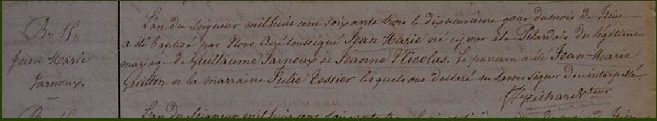 Bp 18
Jean Marie
Jarnoux.
L'an du Seigneur mil huit cent soixante trois le dix neuvieme jour du mois de Juin
a été baptisé par Nous Curé soussigné Jean Marie né ce jour à la du légitime
mariage de Guillaume Jarnoux et Jeanne Nicolas. Le parrain a été Jean Marie
Guitton et la marraine Julie Tessier lesquels ont déclaré ne savoir signer de ce interpellé
L'an du Seigneur mil huit cent soixante